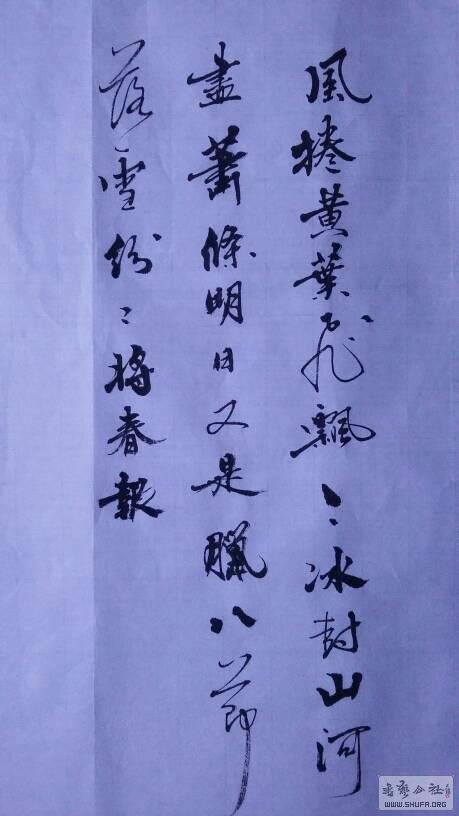 風捲黃葉飛飄〻冰封山河
盡蕭條明日又是臘八節
落雪紛〻將春報
WWW.SHUFA.ORG